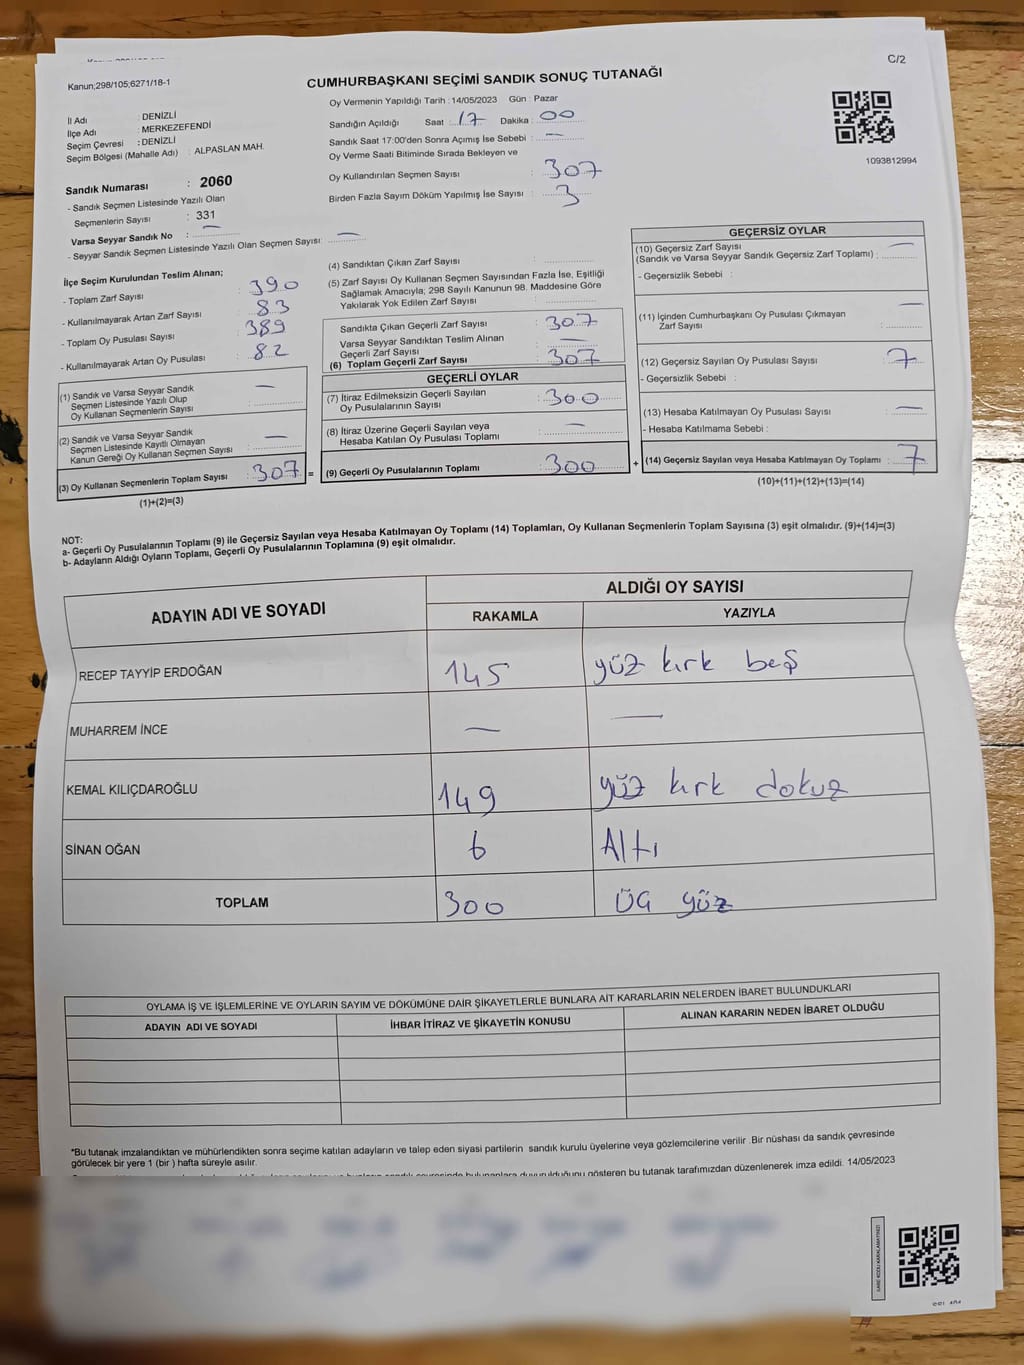 C/2
Kanun;298/105;6271/18-1
CUMHURBAŞKANI SEÇİMİ SANDIK SONUÇ TUTANAĞI
İl Adı : DENİZLİ
İlçe Adı : MERKEZEFENDİ
Seçim Çevresi : DENİZLİ
Seçim Bölgesi (Mahalle Adı) : ALPASLAN MAH.
Sandık Numarası : 2060
- Sandık Seçmen Listesinde Yazılı Olan
Seçmenlerin Sayısı : 331
Varsa Seyyar Sandık No : —
- Seyyar Sandık Seçmen Listesinde Yazılı Olan Seçmen Sayısı: —
Oy Vermenin Yapıldığı Tarih : 14/05/2023 Gün : Pazar
Sandığın Açıldığı Saat : 17 Dakika : 00
Sandık Saat 17:00'den Sonra Açımış İse Sebebi : —
Oy Verme Saati Bitiminde Sırada Bekleyen ve
Oy Kullandırılan Seçmen Sayısı : 307
Birden Fazla Sayım Döküm Yapılmış İse Sayısı : 3
1093812994
İlçe Seçim Kurulundan Teslim Alınan;
- Toplam Zarf Sayısı : 390
- Kullanılmayarak Artan Zarf Sayısı : 83
- Toplam Oy Pusulası Sayısı : 389
- Kullanılmayarak Artan Oy Pusulası : 82
(1) Sandık ve Varsa Seyyar Sandık
Seçmen Listesinde Yazılı Olup
Oy Kullanan Seçmenlerin Sayısı : —
(2) Sandık ve Varsa Seyyar Sandık
Seçmen Listesinde Kayıtlı Olmayan
Kanun Gereği Oy Kullanan Seçmen Sayısı : —
(3) Oy Kullanan Seçmenlerin Toplam Sayısı : 307 =
(1)+(2)=(3)
(4) Sandıktan Çıkan Zarf Sayısı :
(5) Zarf Sayısı Oy Kullanan Seçmen Sayısından Fazla İse, Eşitliği
Sağlamak Amacıyla; 298 Sayılı Kanunun 98. Maddesine Göre
Yakılarak Yok Edilen Zarf Sayısı :
Sandıkta Çıkan Geçerli Zarf Sayısı : 307
Varsa Seyyar Sandıktan Teslim Alınan
Geçerli Zarf Sayısı : —
(6) Toplam Geçerli Zarf Sayısı : 307
GEÇERLİ OYLAR
(7) İtiraz Edilmeksizin Geçerli Sayılan
Oy Pusulalarının Sayısı : 300
(8) İtiraz Üzerine Geçerli Sayılan veya
Hesaba Katılan Oy Pusulası Toplamı : —
(9) Geçerli Oy Pusulalarının Toplamı : 300 +
GEÇERSİZ OYLAR
(10) Geçersiz Zarf Sayısı
(Sandık ve Varsa Seyyar Sandık Geçersiz Zarf Toplamı) : —
- Geçersizlik Sebebi :
(11) İçinden Cumhurbaşkanı Oy Pusulası Çıkmayan
Zarf Sayısı : —
(12) Geçersiz Sayılan Oy Pusulası Sayısı : 7
- Geçersizlik Sebebi :
(13) Hesaba Katılmayan Oy Pusulası Sayısı : —
- Hesaba Katılmama Sebebi :
(14) Geçersiz Sayılan veya Hesaba Katılmayan Oy Toplamı : 7
(10)+(11)+(12)+(13)=(14)
NOT:
a- Geçerli Oy Pusulalarının Toplamı (9) ile Geçersiz Sayılan veya Hesaba Katılmayan Oy Toplamı (14) Toplamları, Oy Kullanan Seçmenlerin Toplam Sayısına (3) eşit olmalıdır. (9)+(14)=(3)
b- Adayların Aldığı Oyların Toplamı, Geçerli Oy Pusulalarının Toplamına (9) eşit olmalıdır.
ADAYIN ADI VE SOYADI
ALDIĞI OY SAYISI
RAKAMLA YAZIYLA
RECEP TAYYİP ERDOĞAN 145 yüz kırk beş
MUHARREM İNCE — —
KEMAL KILIÇDAROĞLU 149 yüz kırk dokuz
SİNAN OĞAN 6 Altı
TOPLAM 300 Üç yüz
OYLAMA İŞ VE İŞLEMLERİNE VE OYLARIN SAYIM VE DÖKÜMÜNE DAİR ŞİKAYETLERLE BUNLARA AİT KARARLARIN NELERDEN İBARET BULUNDUKLARI
ADAYIN ADI VE SOYADI İHBAR İTİRAZ VE ŞİKAYETİN KONUSU ALINAN KARARIN NEDEN İBARET OLDUĞU
*Bu tutanak imzalandıktan ve mühürlendikten sonra seçime katılan adayların ve talep eden siyasi partilerin sandık kurulu üyelerine veya gözlemcilerine verilir .Bir nüshası da sandık çevresinde
görülecek bir yere 1 (bir ) hafta süreyle asılır.
bulunanlara duyurulduğunu gösteren bu tutanak tarafımızdan düzenlenerek imza edildi. 14/05/2023